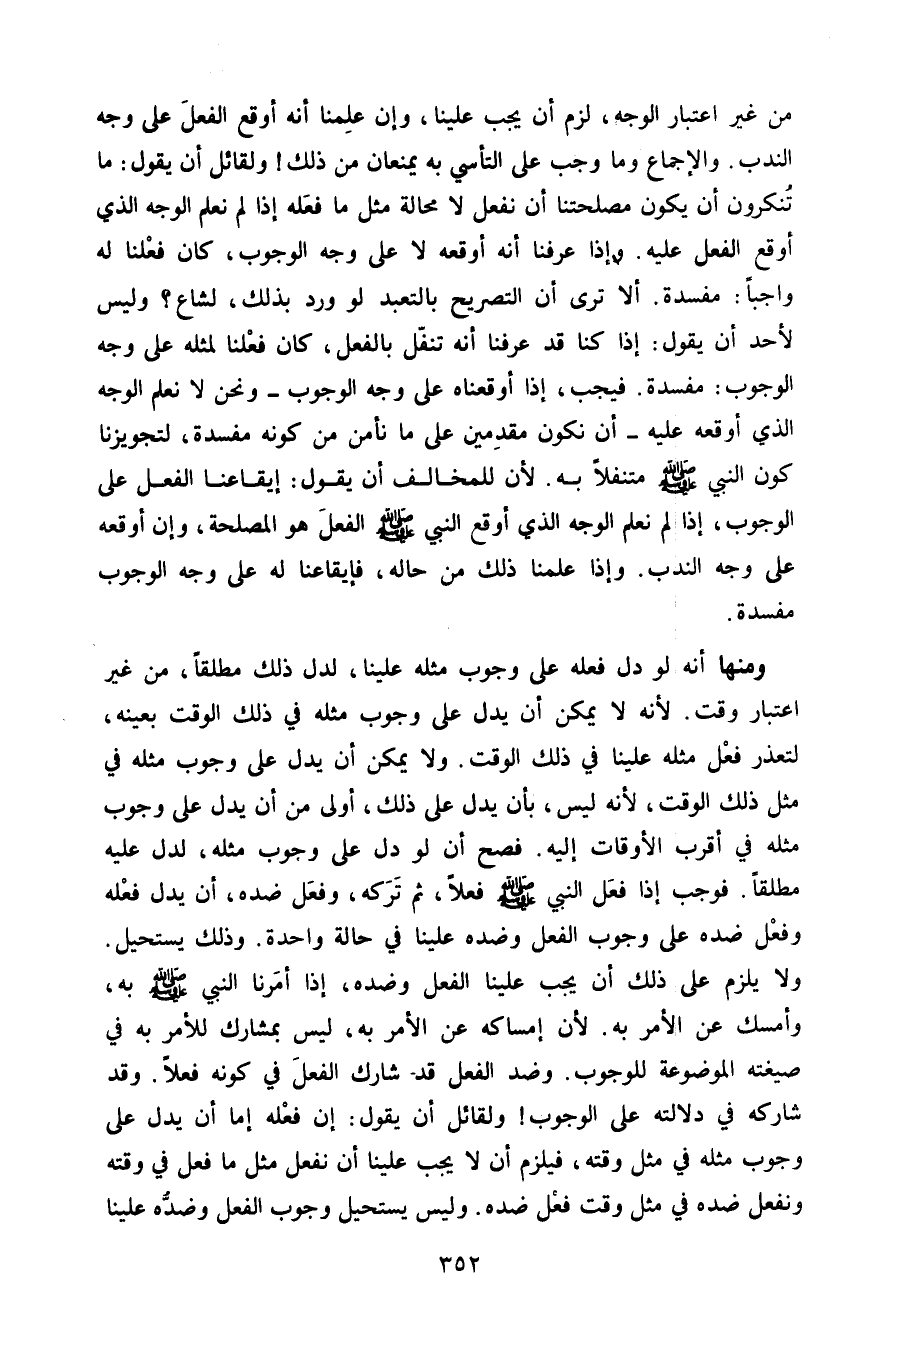 من غير اعتبار الوجه، لزم أن يجب علينا، وإن علِمنا أنه أوقع الفعلَ على وجه
الندب. والإجماع وما وجب على التأسي به يمنعان من ذلك! ولقائل أن يقول: ما
تُنكرون أن يكون مصلحتنا أن نفعل لا محالة مثل ما فعَله إذا لم نعلم الوجه الذي
أوقع الفعل عليه. وإذا عرفنا أنه أوقعه لا على وجه الوجوب، كان فعْلنا له
واجباً: مفسدة. ألا ترى أن التصريح بالتعبد لو ورد بذلك، لشاع؟ وليس
لأحد أن يقول: إذا كنا قد عرفنا أنه تنفّل بالفعل، كان فعْلنا لمثله على وجه
الوجوب: مفسدة. فيجب، إذا أوقعناه على وجه الوجوب - ونحن لا نعلم الوجه
الذي أوقعه عليه - أن نكون مقدِمين على ما نأمن من كونه مفسدة، لتجويزنا
كون النبي ﷺ متنفلاً به. لأن للمخالف أن يقول: إيقاعنا الفعل على
الوجوب، إذا لم نعلم الوجه الذي أوقع النبي ﷺ الفعلَ هو المصلحة، وإن أوقعه
على وجه الندب. وإذا علمنا ذلك من حاله، فإيقاعنا له على وجه الوجوب
مفسدة.
ومنها أنه لو دل فعله على وجوب مثله علينا، لدل ذلك مطلقاً، من غير
اعتبار وقت. لأنه لا يمكن أن يدل على وجوب مثله في ذلك الوقت بعينه،
لتعذر فعْل مثله علينا في ذلك الوقت. ولا يمكن أن يدل على وجوب مثله في
مثل ذلك الوقت، لأنه ليس، بأن يدل على ذلك، أولى من أن يدل على وجوب
مثله في أقرب الأوقات إليه. فصح أن لو دل على وجوب مثله، لدل عليه
مطلقاً. فوجب إذا فعَل النبي ﷺ فعلاً، ثم تَرَكه، وفعَل ضده، أن يدل فعْله
وفعْل ضده على وجوب الفعل وضده علينا في حالة واحدة. وذلك يستحيل.
ولا يلزم على ذلك أن يجب علينا الفعل وضده، إذا أمَرنا النبي ﷺ به،
وأمسك عن الأمر به. لأن إمساكه عن الأمر به، ليس بمشارك للأمر به في
صيغته الموضوعة للوجوب. وضد الفعل قد شارك الفعلَ في كونه فعلاً. وقد
شاركه في دلالته على الوجوب! ولقائل أن يقول: إن فعْله إما أن يدل على
وجوب مثله في مثل وقته، فيلزم أن لا يجب علينا أن نفعل مثل ما فعل في وقته
ونفعل ضده في مثل وقت فعْل ضده. وليس يستحيل وجوب الفعل وضدُّه علينا
٣٥٢